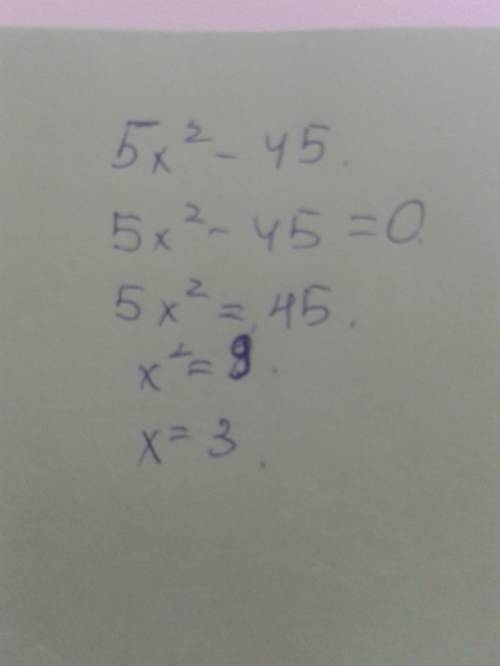 5x² - 45.
5x² - 45 = 0.
5x² = 45.
x² = 9.
x = 3.